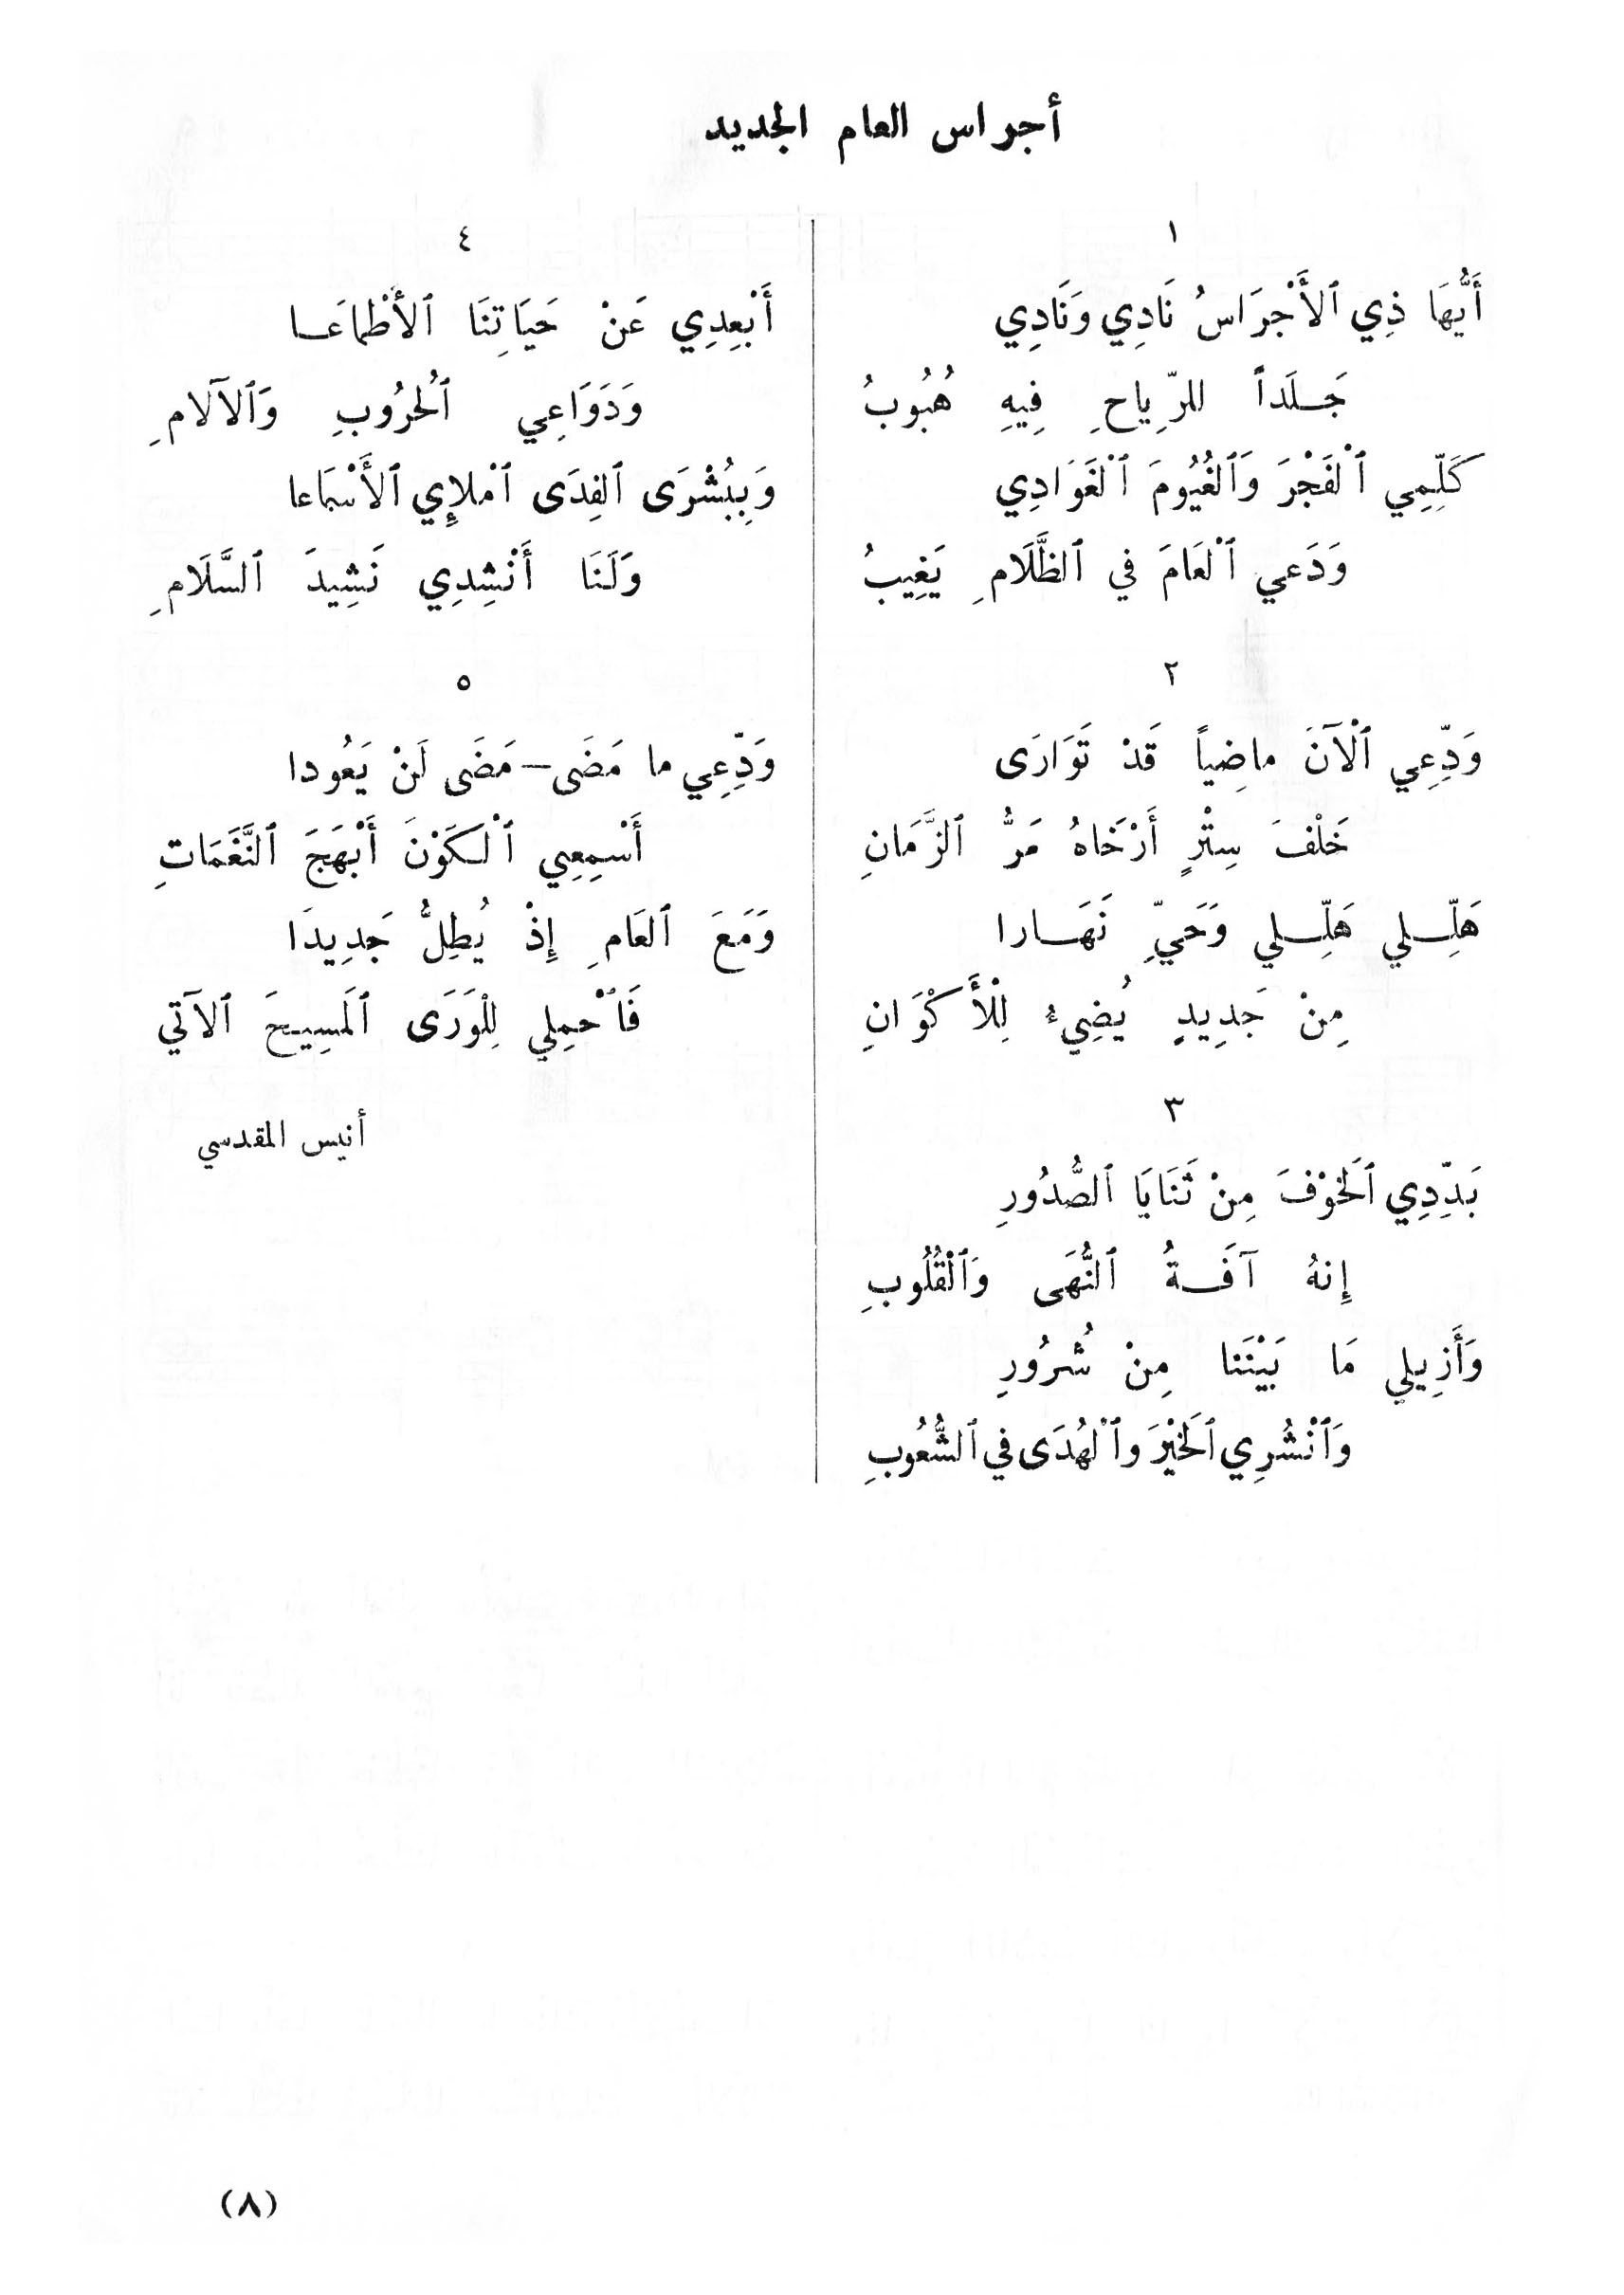 أجراس العام الجديد
١
أَيُّهَا ذِي ٱلأَجْرَاسُ نَادِي وَنَادِي
جَلَداً للرِّياحِ فِيهِ هُبُوبُ
كَلِّمِي ٱلْفَجْرَ وَٱلغُيُومَ ٱلْغَوَادِي
وَدَعي ٱلْعَامَ في ٱلظَّلَامِ يَغِيبُ
٢
وَدِّعِي ٱلْآنَ ماضِياً قَدْ تَوَارَى
خَلْفَ سِتْرٍ أَرْخَاهُ مَرُّ ٱلزَّمَانِ
هَلِّلي هَلِّلي وَحَيِّ نَهَارا
مِنْ جَدِيدٍ يُضِيءُ لِلْأَكْوَانِ
٣
بَدِّدِي ٱلَخَوْفَ مِنْ ثَنَايَا ٱلصُّدُورِ
إِنهُ آفَةُ ٱلنُّهَى وَٱلْقُلُوبِ
وَأَزِيلي مَا بَيْنَنا مِنْ شُرُورِ
وَٱنْشُرِي ٱلَخَيْرَ وٱلْهُدَى في ٱلشُّعُوبِ
٤
أَبْعِدِي عَنْ حَيَاتِنَا ٱلأَطْمَاعَا
وَدَوَاعِي ٱلُحرُوبِ وَٱلآلامِ
وَبِبُشْرَى ٱلفِدَى ٱمْلإِي ٱلأَسْمَاعا
وَلَنَا أَنْشِدِي نَشِيدَ ٱلسَّلَامِ
٥
وَدِّعِي ما مَضَى – مَضَى لَنْ يَعُودا
أَسْمِعِي ٱلْكَوْنَ أَبْهَجَ ٱلنَّغَمَاتِ
وَمَعَ ٱلعَامِ إِذْ يُطِلُّ جَدِيدَا
فَٱحْمِلي لِلْوَرَى ٱلَمسِيحَ ٱلآتي
أنيس المقدسي
(٨)